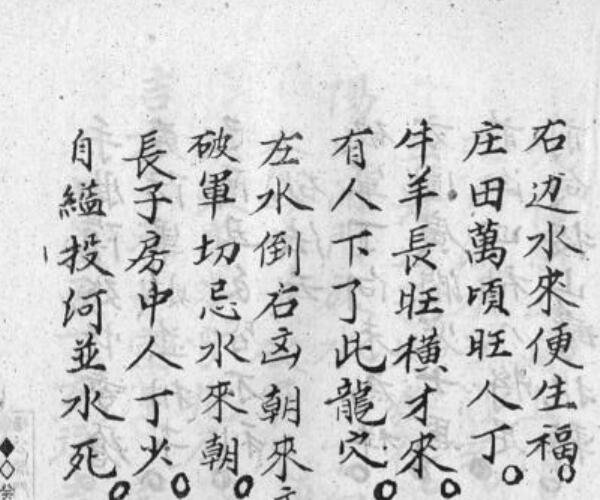 右边水來便生福
庄田萬頃旺人丁
牛羊長旺横才來
有人下了此龍穴
左水倒右凶朝來
破軍切忌水來朝
長子房中人丁少
自縊投河並水死